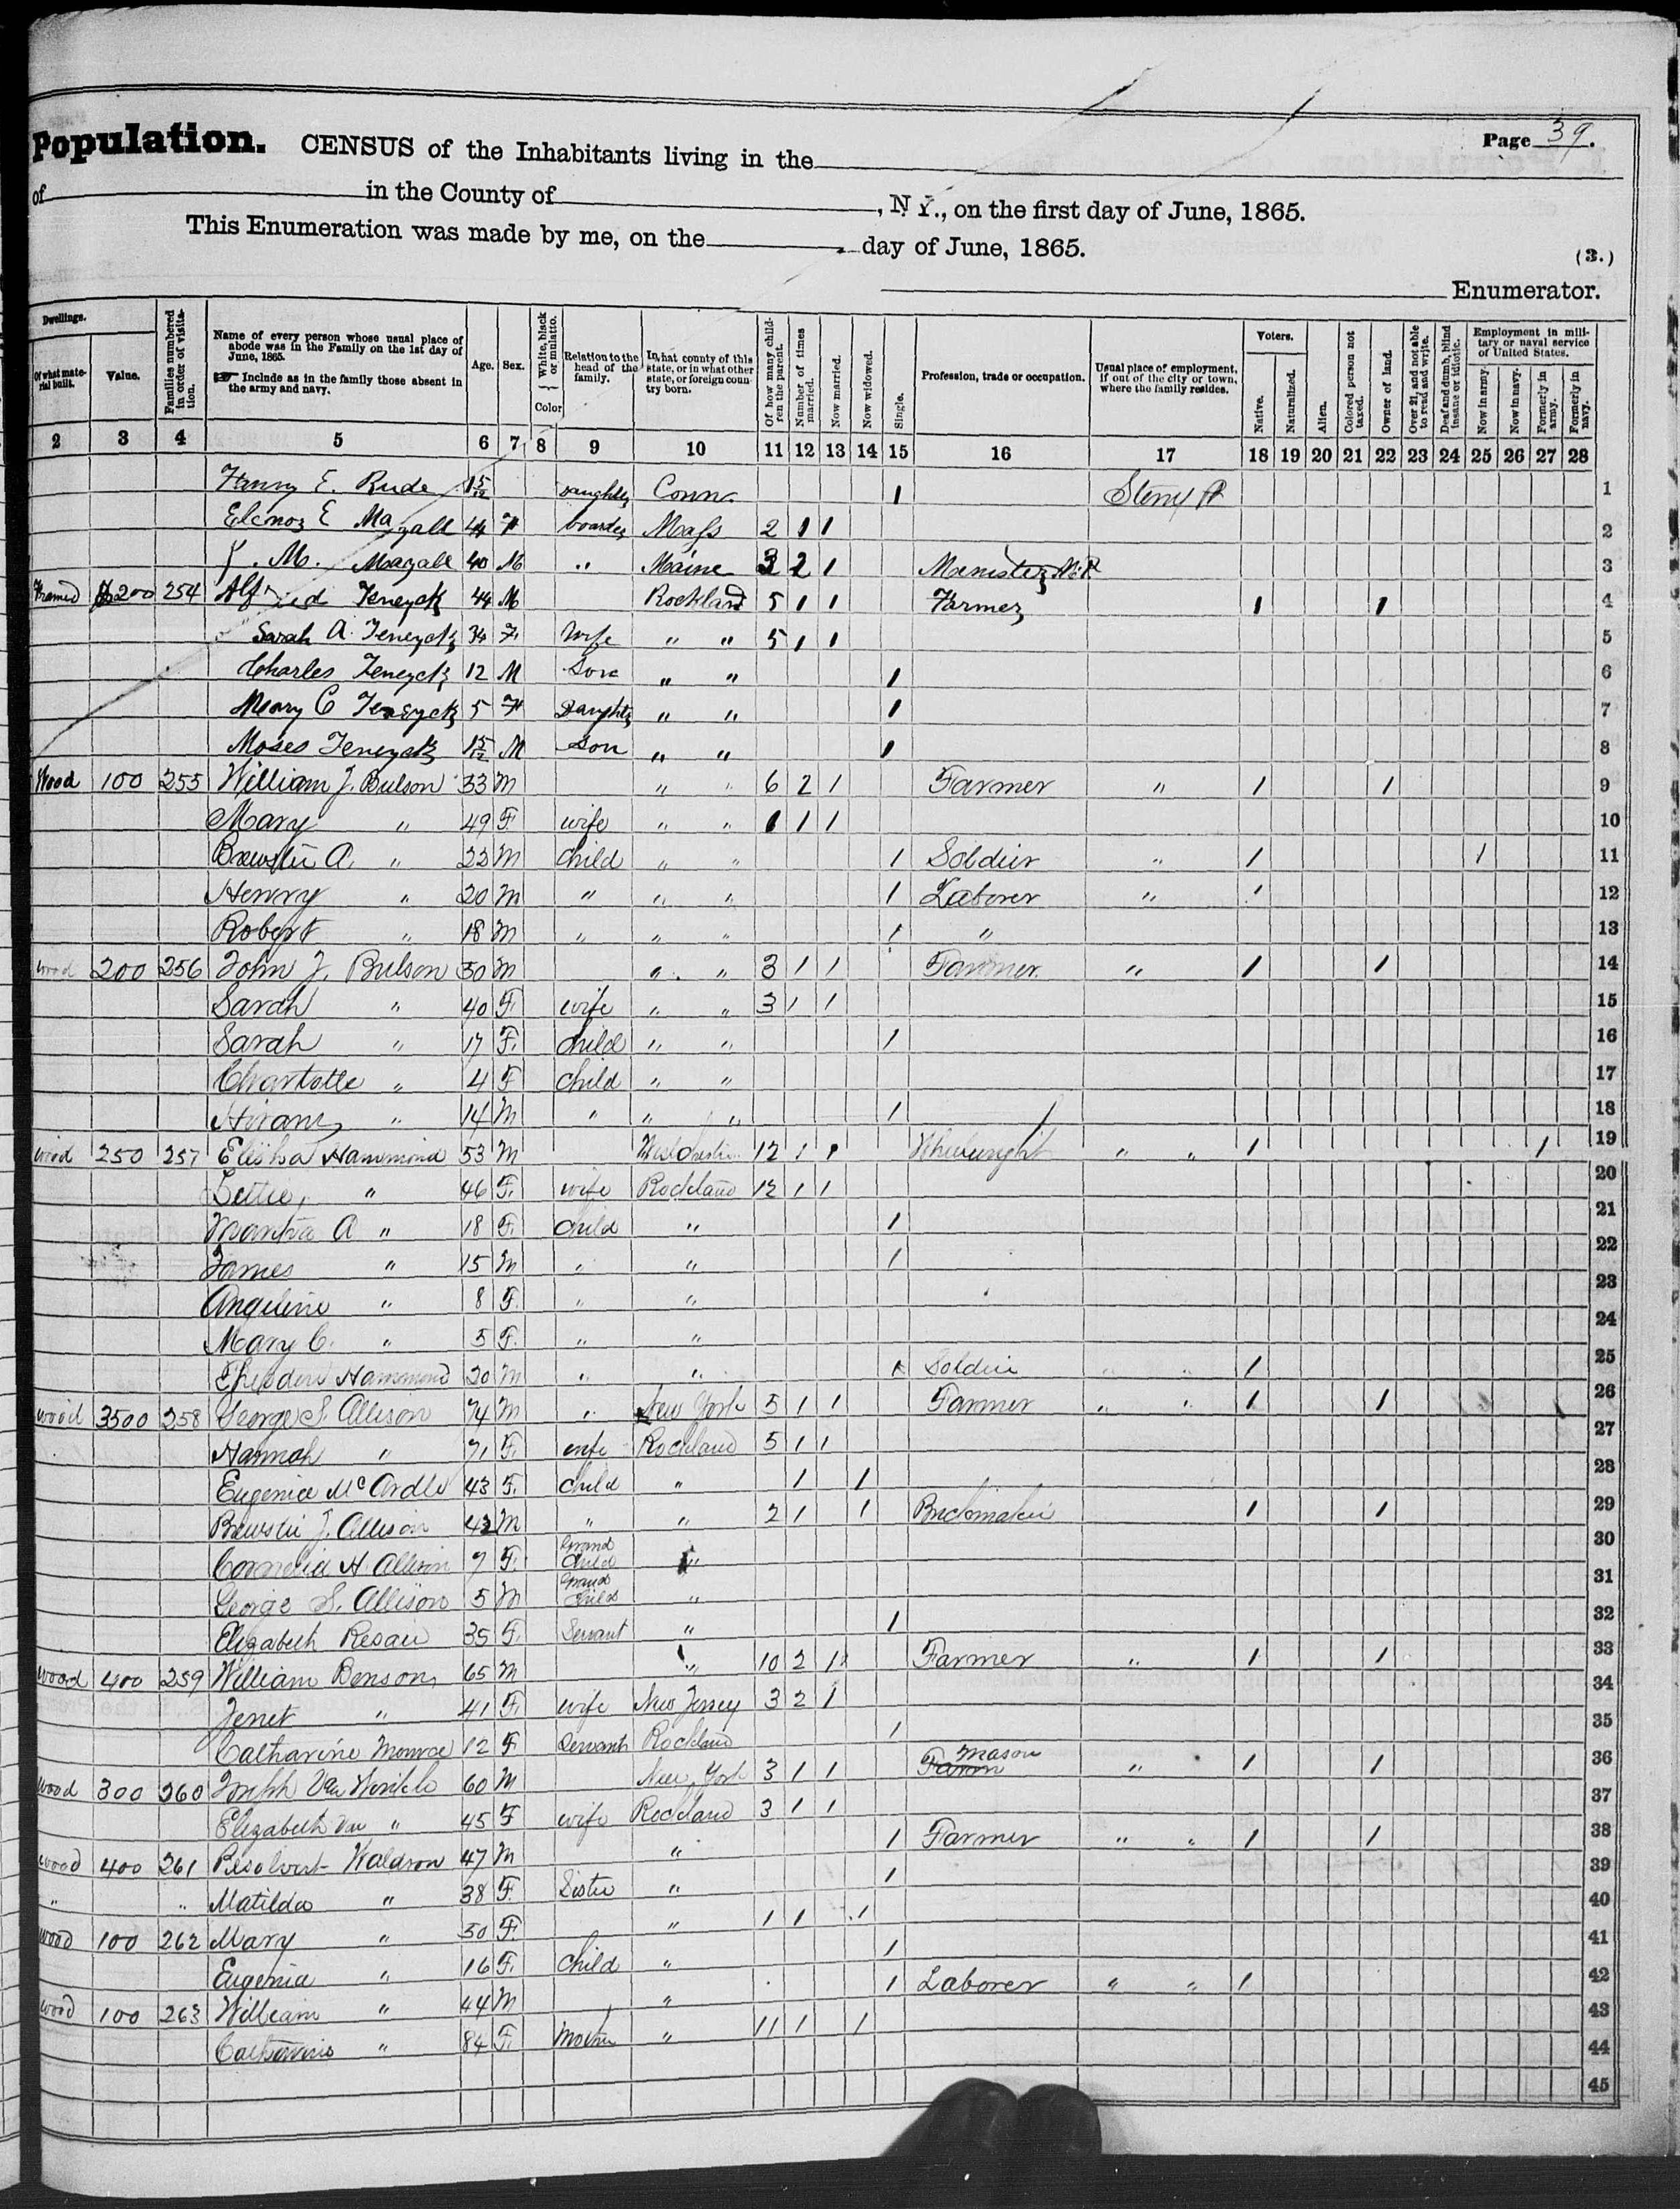 Population. CENSUS of the Inhabitants living in the Page 39.
of in the County of , N. Y., on the first day of June, 1865.
This Enumeration was made by me, on the day of June, 1865.
(3.)
Enumerator.
Dwellings.
Of what material built.
Value.
Families numbered in order of visitation.
Name of every person whose usual place of abode was in the Family on the 1st day of June, 1865.
☞ Include as in the family those absent in the army and navy.
Age.
Sex.
White, black or mulatto.
Color
Relation to the head of the family.
In what county of this state, or in what other state, or foreign country born.
Of how many children the parent.
Number of times married.
Now married.
Now widowed.
Single.
Profession, trade or occupation.
Usual place of employment, if out of the city or town, where the family resides.
Voters.
Native.
Naturalized.
Alien.
Colored person not taxed.
Owner of land.
Over 21, and not able to read and write.
Deaf and dumb, blind insane or idiotic.
Employment in military or naval service of United States.
Now in army.
Now in navy.
Formerly in army.
Formerly in navy.
2 3 4 5 6 7 8 9 10 11 12 13 14 15 16 17 18 19 20 21 22 23 24 25 26 27 28
Fanny E. Rude 1 5/12 Daughter Conn. 1 Stony Pt 1
Elenor E Magall 44 F boarder Mass 2 1 1 2
M. Magall 40 M " Maine 3 2 1 3
Framed $200 254 Alfred Teneyck 44 M Rockland 5 1 1 Farmer 1 1 4
Sarah A. Teneyck 34 F. Wife " " 5 1 1 5
Charles Teneyck 12 M Son " " 1 6
Mary C Teneyck 5 F Daughter " " 1 7
Moses Teneyck 1 5/12 M Son " " 1 8
Wood 100 255 William J. Bulson 33 M " " 6 2 1 Farmer " 1 1 9
Mary " 49 F. wife " " 1 1 1 10
Brewster A. " 22 M child " " 1 Soldier " 1 1 11
Henry " 20 M " " " 1 Laborer " 1 12
Robert " 18 M " " " 1 " 13
wood 200 256 John J. Bulson 50 M " " 3 1 1 Farmer " 1 1 14
Sarah " 40 F. wife " " 3 1 1 15
Sarah " 17 F. child " " 1 16
Charlotte " 4 F child " " 17
Hiram " 14 M " " " 1 18
wood 250 257 Elisha Hammond 53 M Westchester 12 1 1 " " 1 1 19
Lettie " 46 F. wife Rockland 12 1 1 20
Martha A " 18 F. child " 1 21
James " 15 M " " 1 22
Angeline " 8 F. " " 23
Mary C. " 5 F. " " 24
Hammond 20 M " " 1 Soldier " " 1 25
wood 3500 258 George S. Allison 74 M " New York 5 1 1 Farmer " " 1 1 26
Hannah " 71 F. wife Rockland 5 1 1 27
Eugenia McArdle 43 F. child " 1 1 28
Brewster J. Allison 42 M " " 2 1 1 Brickmaker 1 1 29
Cornelia H Allison 7 F. Grand Child " 30
George S. Allison 5 M Grand Child " 31
Elizabeth 35 F. Servant " 1 32
wood 400 259 William Benson 65 M " 10 2 1 Farmer " 1 1 33
Jenet " 41 F. wife New Jersey 3 2 1 34
Catharine Monroe 12 F Servant Rockland 1 35
wood 300 260 Joseph Van Winkle 60 M New York 3 1 1 Mason " 1 1 36
Elizabeth Van " 45 F wife Rockland 3 1 1 37
wood 400 261 Resolvert Waldron 47 M " 1 Farmer " " 1 1 38
" " Matilda " 38 F. Sister " 1 39
wood 100 262 Mary " 50 F. " 1 1 1 40
Eugenia " 16 F. Child " 1 41
wood 100 263 William " 44 M " 1 Laborer " " 1 42
Catharine " 84 F. Mother " 11 1 1 43
44
45